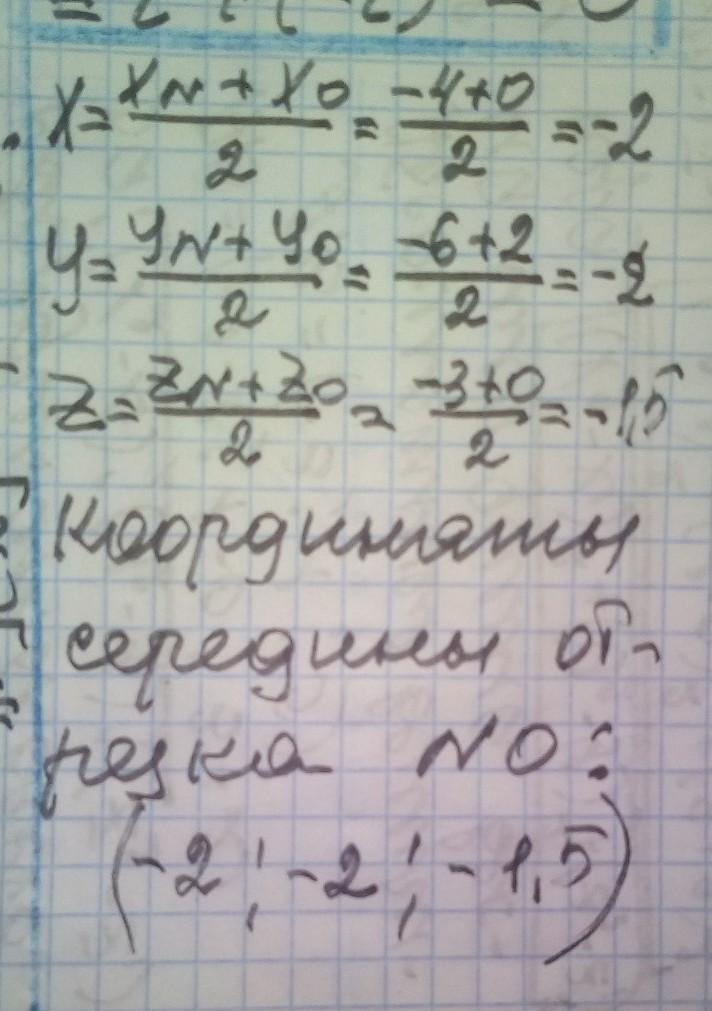 X = (XN + XO)/2 = (-4+0)/2 = -2
y = (yN + yO)/2 = (-6+2)/2 = -2
Z = (ZN + ZO)/2 = (-3+0)/2 = -1,5
Координаты
середины от-
резка NO:
(-2; -2; -1,5)